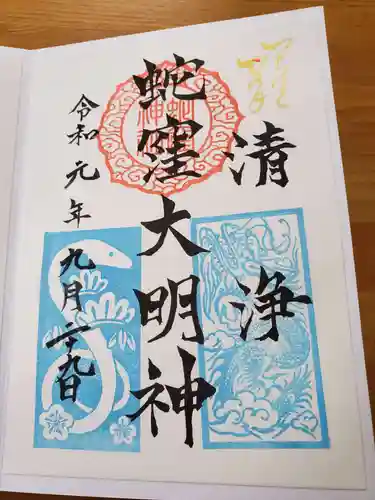 清浄
蛇窪大明神
令和元年九月二十九日